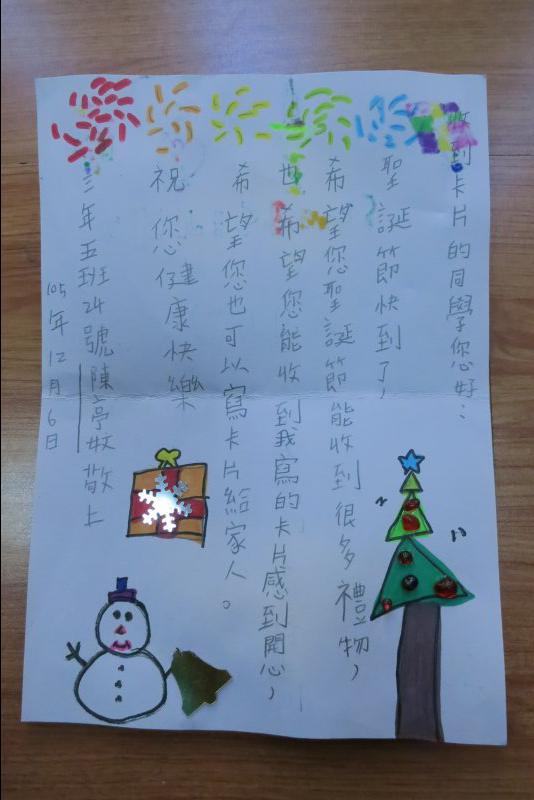 收到卡片的同學您好：
聖誕節快到了，
希望您聖誕節能收到很多禮物，
也希望您能收到我寫的卡片感到開心，
希望您也可以寫卡片給家人。
祝您健康快樂
三年五班24號陳亭妏敬上
105年12月6日